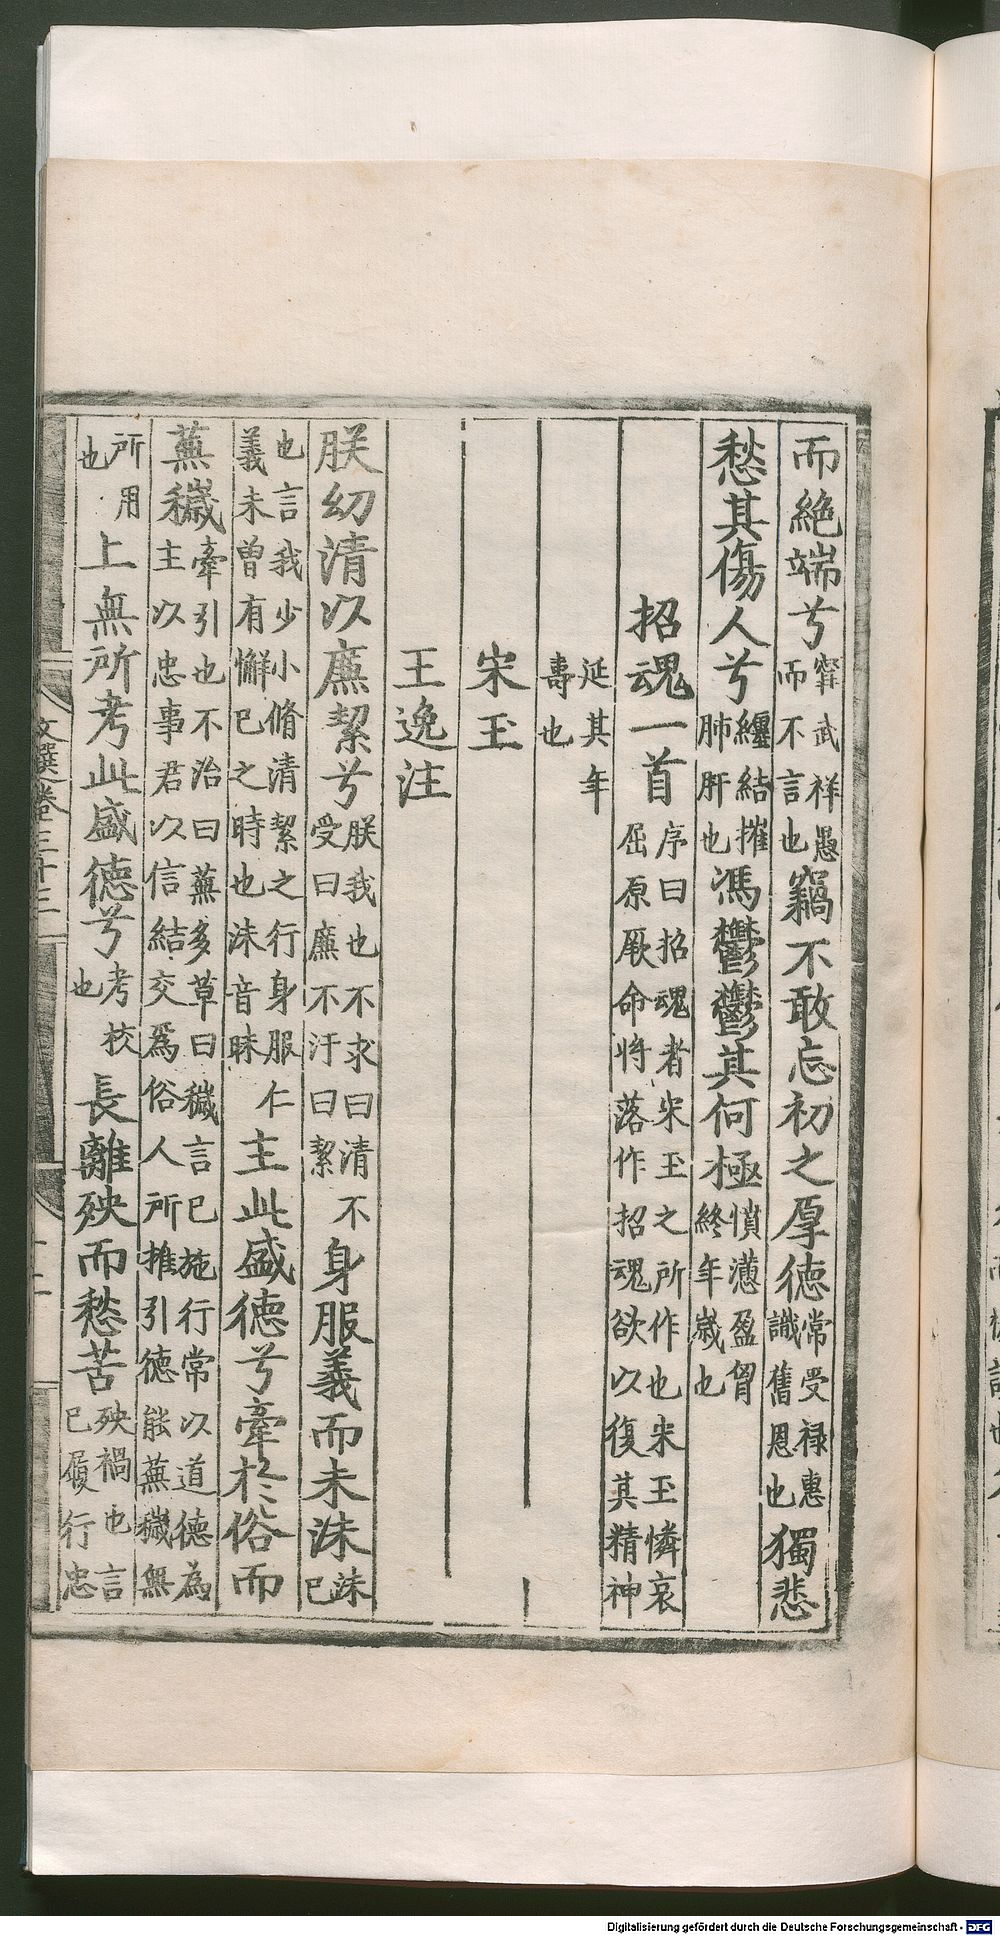 而絶端兮甯武祥愚而不言也竊不敢忘初之厚德常受禄惠識舊恩也獨悲
愁其傷人兮纏結摧肺肝也馮鬱鬱其何極憤懣盈胷終年歲也
招魂一首序曰招魂者宋玉之所作也宋玉憐哀屈原厥命將落作招魂欲以復其精神
延其年壽也
宋玉
王逸注
朕幼清以廉絜兮朕我也不求曰清不受曰廉不汙曰絜身服義而未沬沬已
也言我少小脩清絜之行身服仁義未曾有懈已之時也沬音昧主此盛德兮牽於俗而
蕪穢牽引也不治曰蕪多草曰穢言已施行常以道德為主以忠事君以信結交爲俗人所推引德能蕪穢無
所用也上無所考此盛德兮考校也長離殃而愁苦殃禍也言已履行忠
文選卷三十三
Digitalisierung gefördert durch die Deutsche Forschungsgemeinschaft - DFG